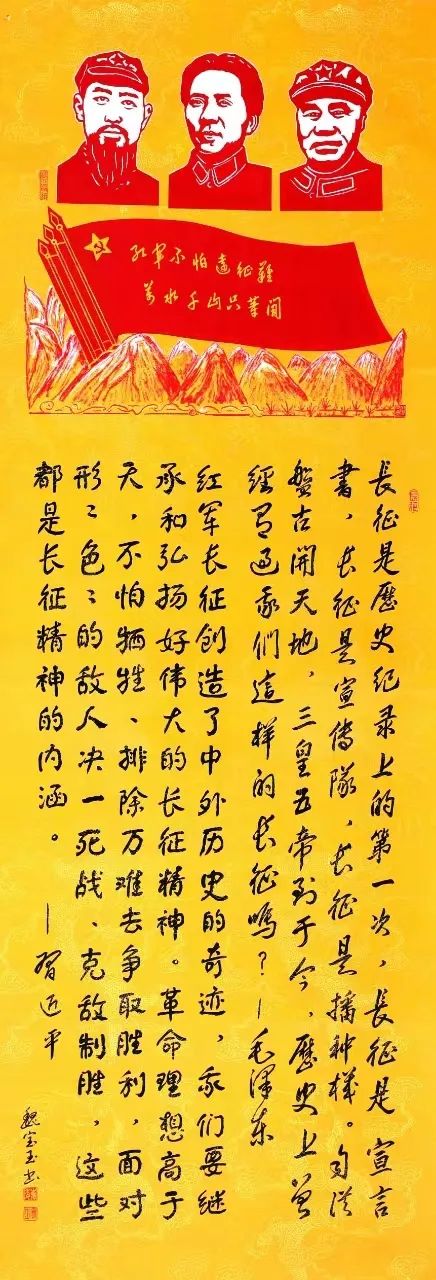 红軍不怕遠征難
萬水千山只等閒
長征是歷史纪录上的第一次，長征是宣言
書，长征是宣傳隊，长征是播种機。自從
盤古開天地，三皇五帝到于今，歷史上曾
經有过我們這样的长征嗎？—毛澤东
红军长征创造了中外历史的奇迹，我们要继
承和弘扬好伟大的长征精神。革命理想高于
天，不怕牺牲、排除万难去争取胜利，面对
形々色々的敌人决一死战、克敌制胜，这些
都是长征精神的内涵。—習近平
魏宝玉书